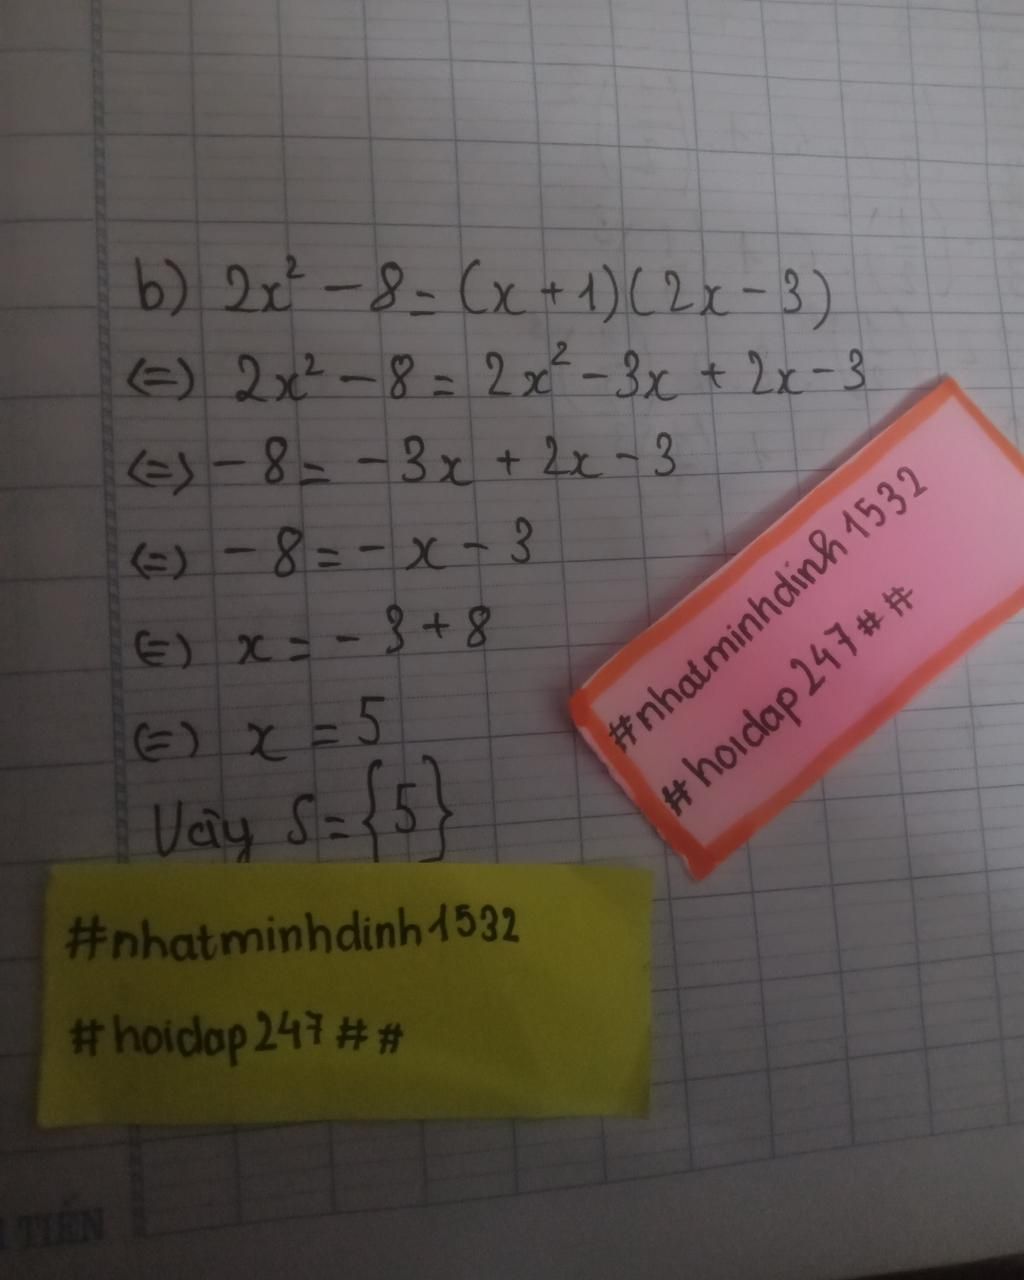 b) 2x² - 8 = (x + 1)(2x - 3)
(=) 2x² - 8 = 2x² - 3x + 2x - 3
(=) - 8 = - 3x + 2x - 3
(=) - 8 = - x - 3
(=) x = - 3 + 8
(=) x = 5
Vậy S = {5}
#nhatminhdinh1532
#hoidap247##
#nhatminhdinh1532
#hoidap247##
TIẾN